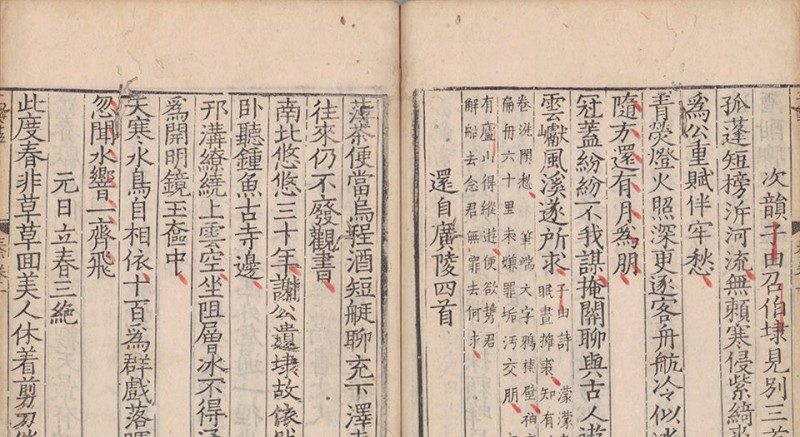 次韻子由召伯埭見別三
孤蓬短榜泝河流無賴寒侵紫綺
爲公重賦伴牢愁
青熒燈火照深更逐客舟航冷似
隨方還有月爲朋
冠蓋紛紛不我謀掩關聊與古人
雲巘風溪遂所求
子由詩 濛濛
賦畫擁裘知有
筆端大字鴉棲壁袖
卷洗閑愁
扁舟六十里未嫌罪垢汚交朋
有廬山得縱遊便欲勢君
解船去念君無罪去何求
還自廣陵四首
薄茶便當烏程酒短艇聊充下澤
往來仍不發觀書
南北悠悠三十年謝公遺埭故依
臥聽鍾魚古寺邊
邗溝繚繞上雲空坐阻層冰不得
爲開明鏡玉奩中
天寒水鳥自相依十百爲群戲落
忽聞水響一齊飛
元日立春三絶
此度春非草草囬美人休着剪刀